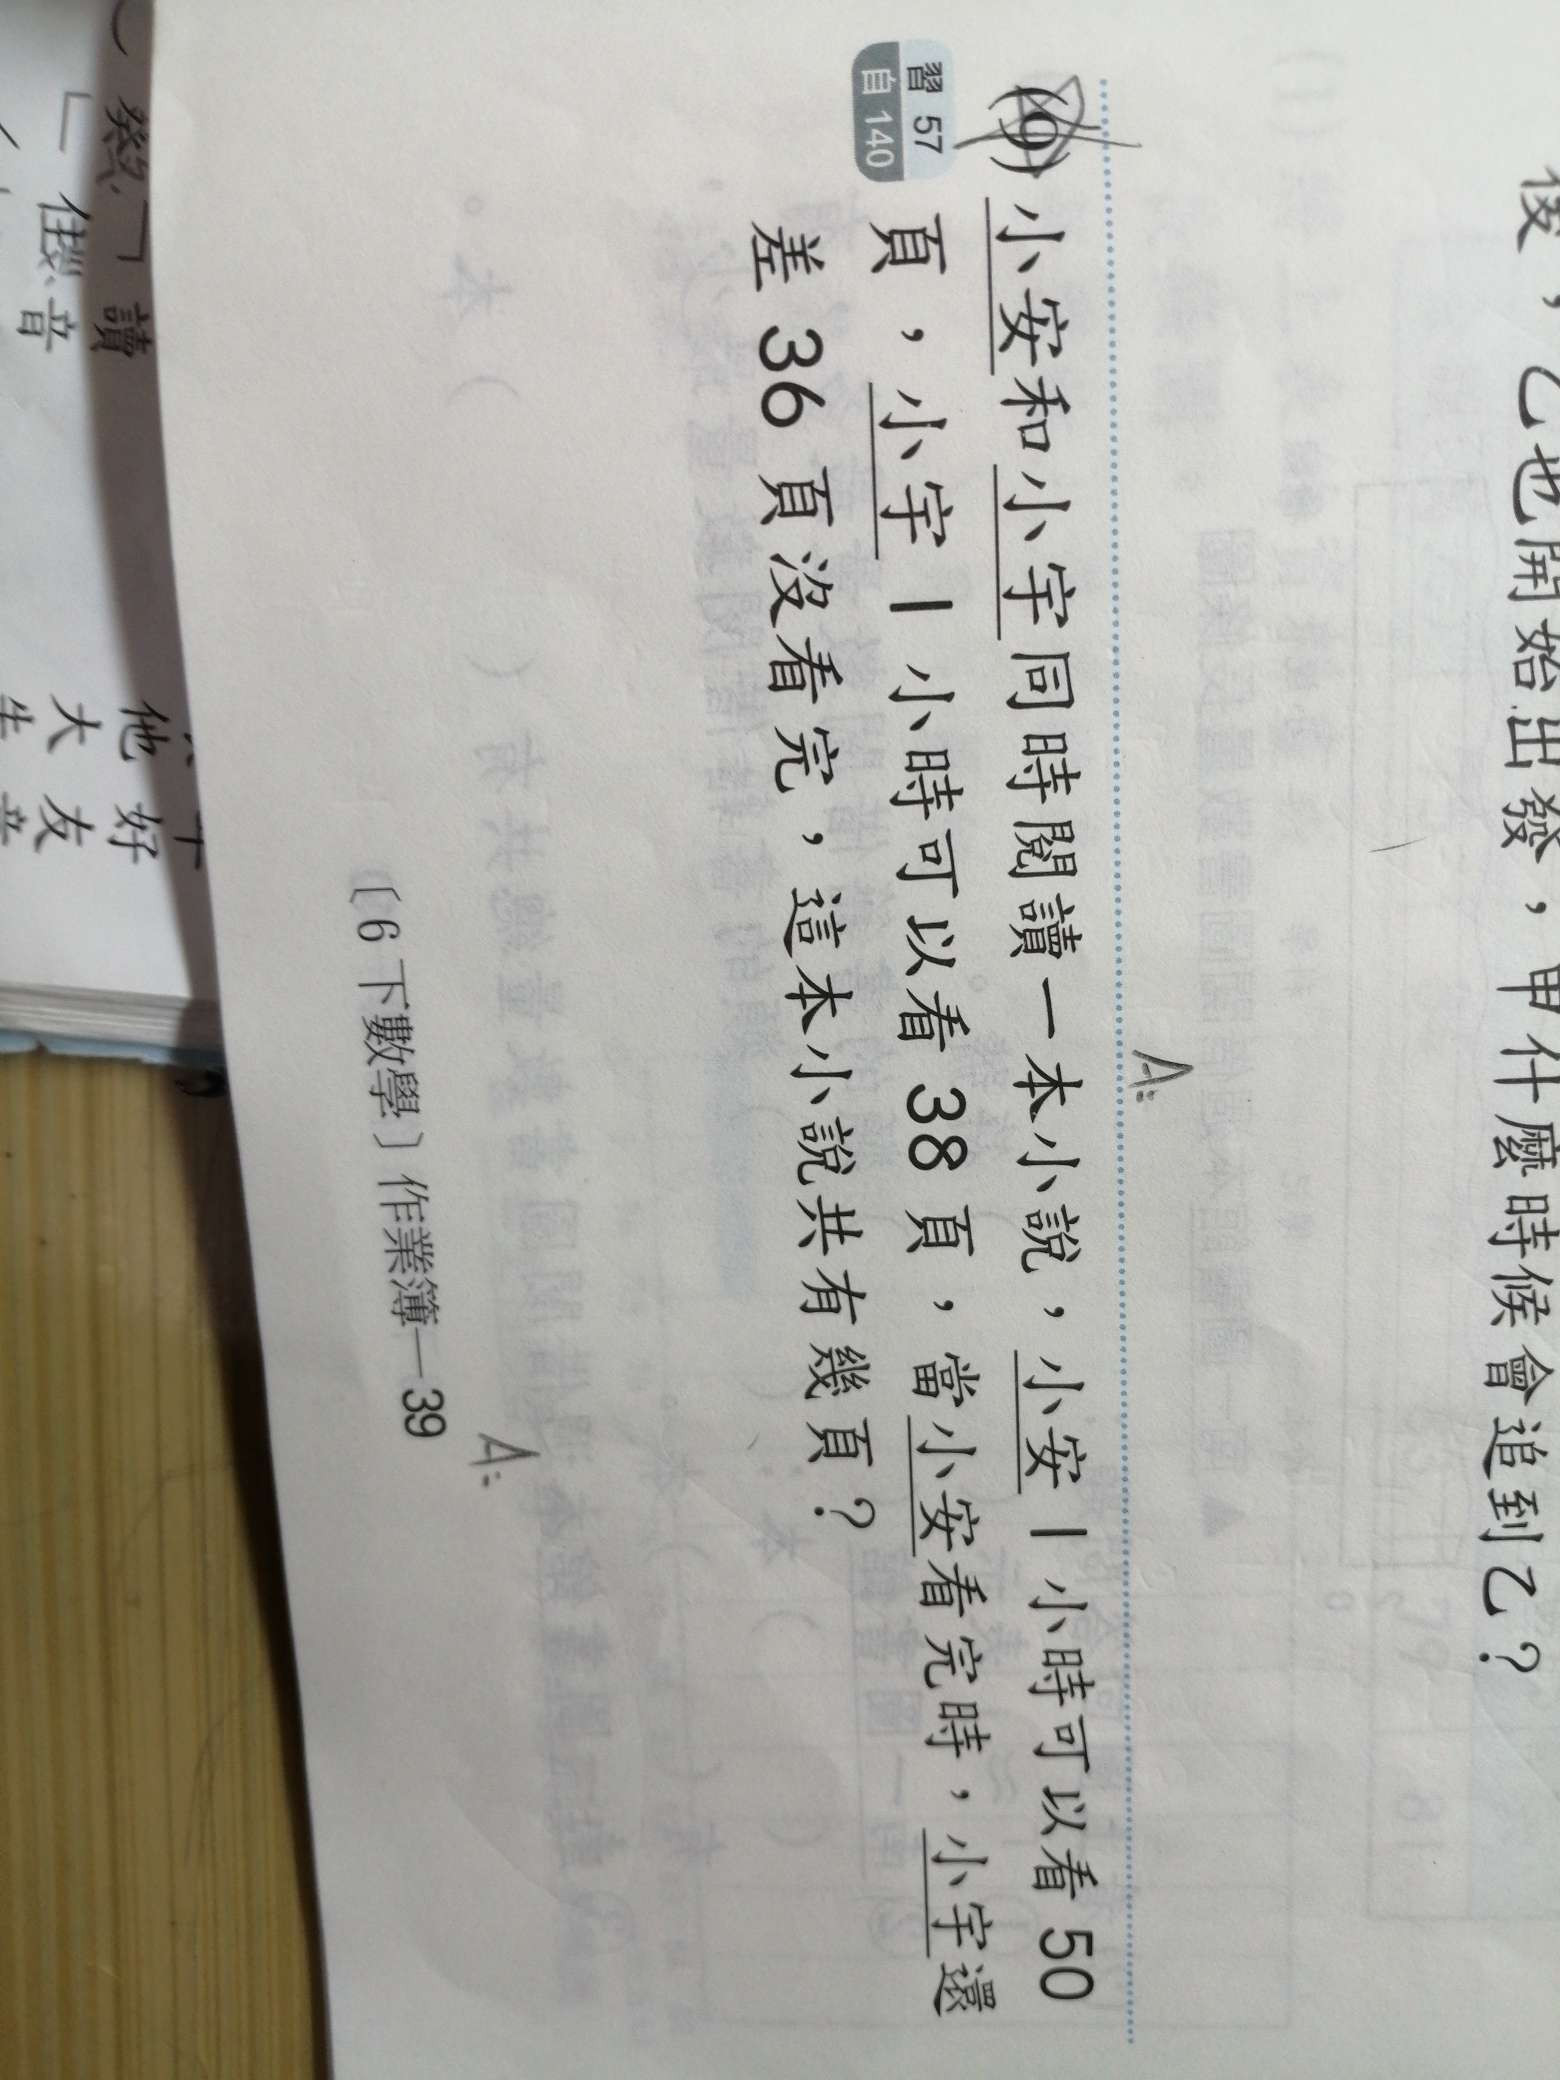 後，乙也開始出發，甲什麼時候會追到乙？
A:
習 57
自 140
(9) 小安和小宇同時閱讀一本小說，小安 1 小時可以看 50
頁，小宇 1 小時可以看 38 頁，當小安看完時，小宇還
差 36 頁沒看完，這本小說共有幾頁？
A:
〔6 下數學〕作業簿－39
讀
音
他 好
大 友